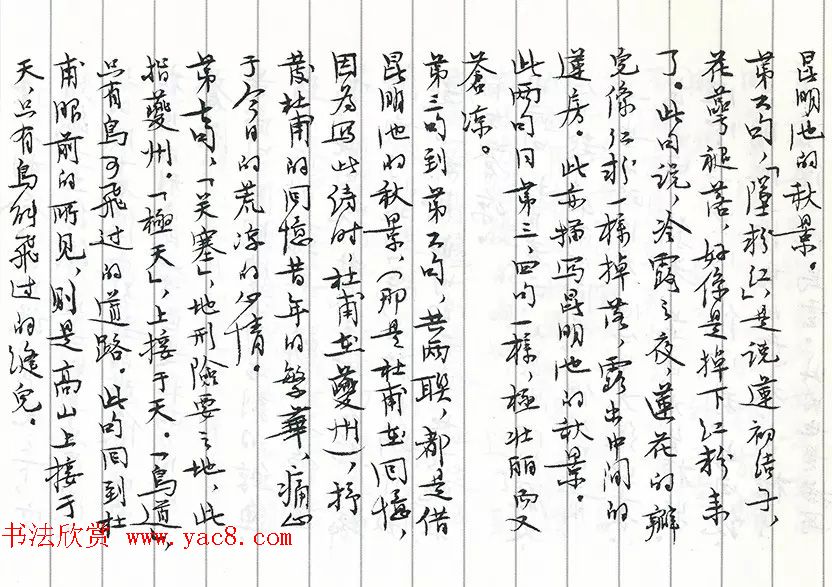 昆明池的秋景。
第六句，「墜粉红」是说蓮初結子，
花萼褪落，好像是掉下红粉来
了。此句说，冷露之夜，蓮花的瓣
儿像红粉一樣掉落，露出中间的
蓮房。此亦描写昆明池的秋景。
此两句同第三、四句一樣，極壮丽而又
蒼凉。
第三句到第六句，共两联，都是借
昆明池的秋景，（那是杜甫在回憶，
因为写此诗时，杜甫在夔州），抒
發杜甫的回憶昔年的繁華、痛心
于今日的荒凉的心情。
第七句，「关塞」，地形險要之地，此
指夔州。「極天」，上接于天。「鳥道」，
只有鳥可飛过的道路。此句回到杜
甫眼前的所见，则是高山上接于
天，只有鳥形飛过的縫兒。
书法欣赏 www.yac8.com